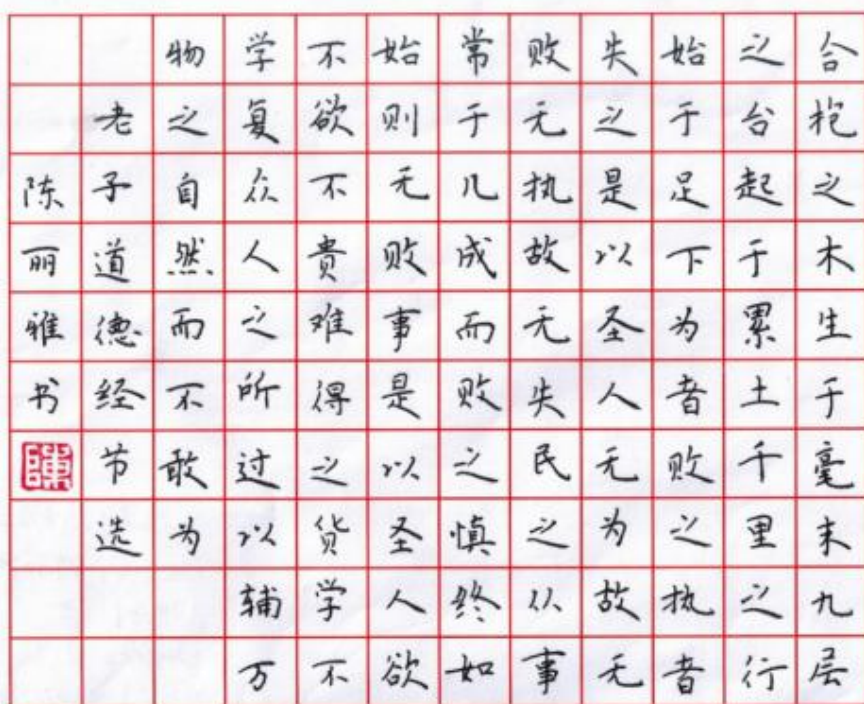 合抱之木生于毫末九层
之台起于累土千里之行
始于足下为者败之执者
失之是以圣人无为故无
败无执故无失民之从事
常于几成而败之慎终如
始则无败事是以圣人欲
不欲不贵难得之货学不
学复众人之所过以辅万
物之自然而不敢为
老子道德经节选
陈丽雅书
陈